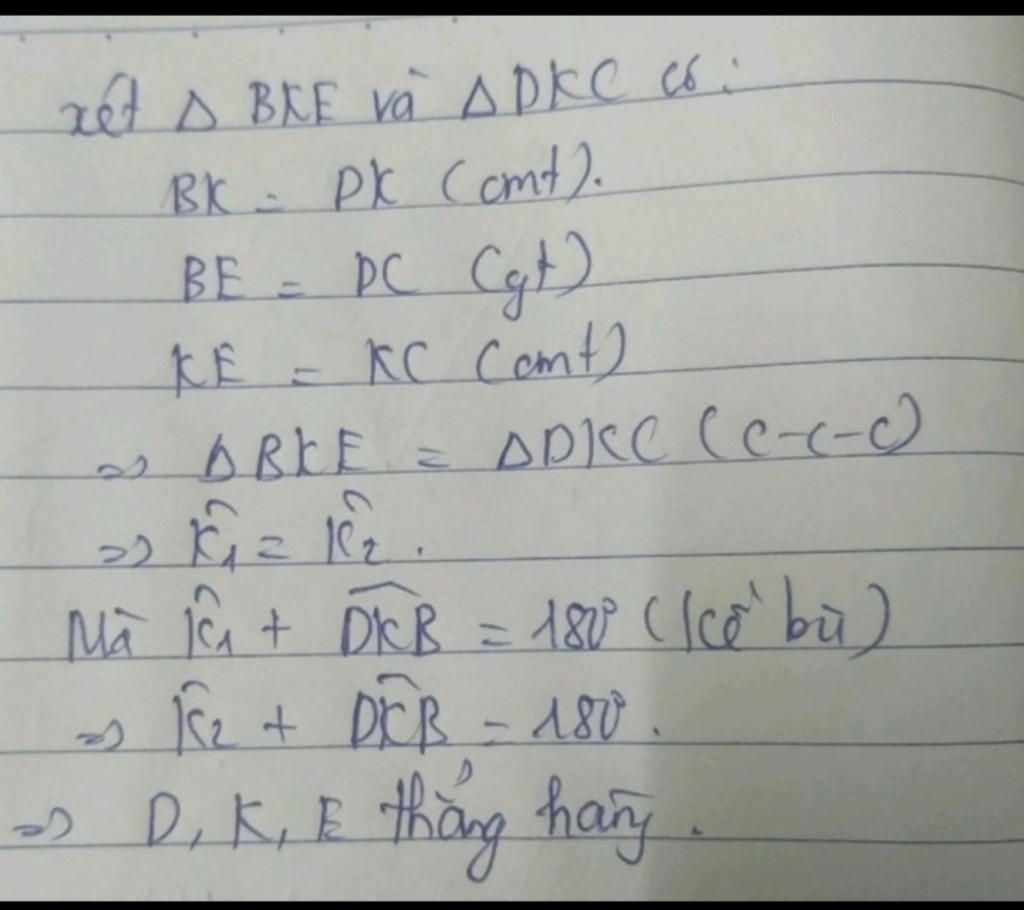 xét Δ BKE và Δ DKC có:
BK = DK (cmt).
BE = DC (gt)
KE = KC (cmt)
=> Δ BKE = Δ DKC (c-c-c)
=> K̂₁ = K̂₂.
Mà K̂₁ + \widehat{DKB} = 180° (kề bù)
=> K̂₂ + \widehat{DKB} = 180°.
=> D, K, E thẳng hàng.